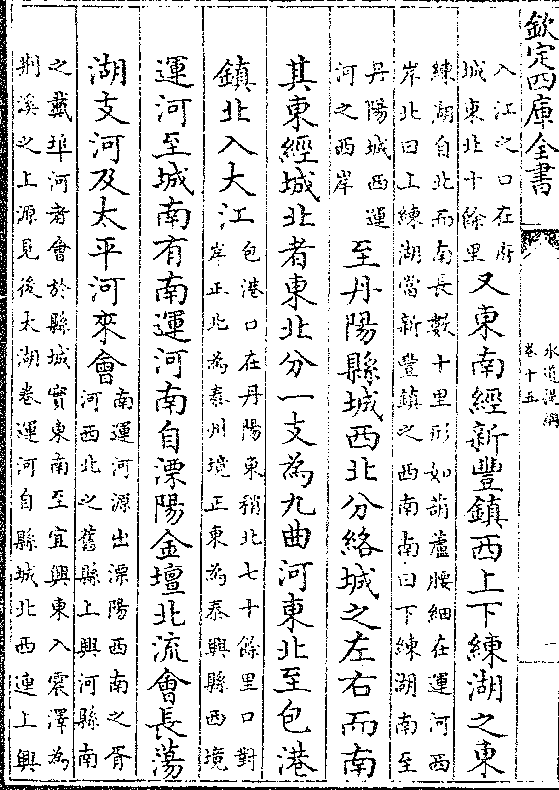 欽定四庫全書
水道提綱
卷十五
入江之口在府
城東北十餘里
又東南經新豐鎮西上下練湖之東
練湖自北而南長數十里形如葫蘆腰細在運河西
岸北曰上練湖當新豐鎮之西南南曰下練湖南至
丹陽城西運
河之西岸
至丹陽縣城西北分絡城之左右而南
其東經城北者東北分一支為九曲河東北至包港
鎮北入大江
包港口在丹陽東稍北七十餘里口對
岸正北為泰州境正東為泰興縣西境
運河至城南有南運河南自溧陽金壇北流會長蕩
湖支河及太平河來會
南運河源出溧陽西南之胥
河西北之舊縣上興河縣南
之戴埠河者會於縣城實東南至宜興東入震澤為
荊溪之上源見後太湖卷運河自縣城北西連上興